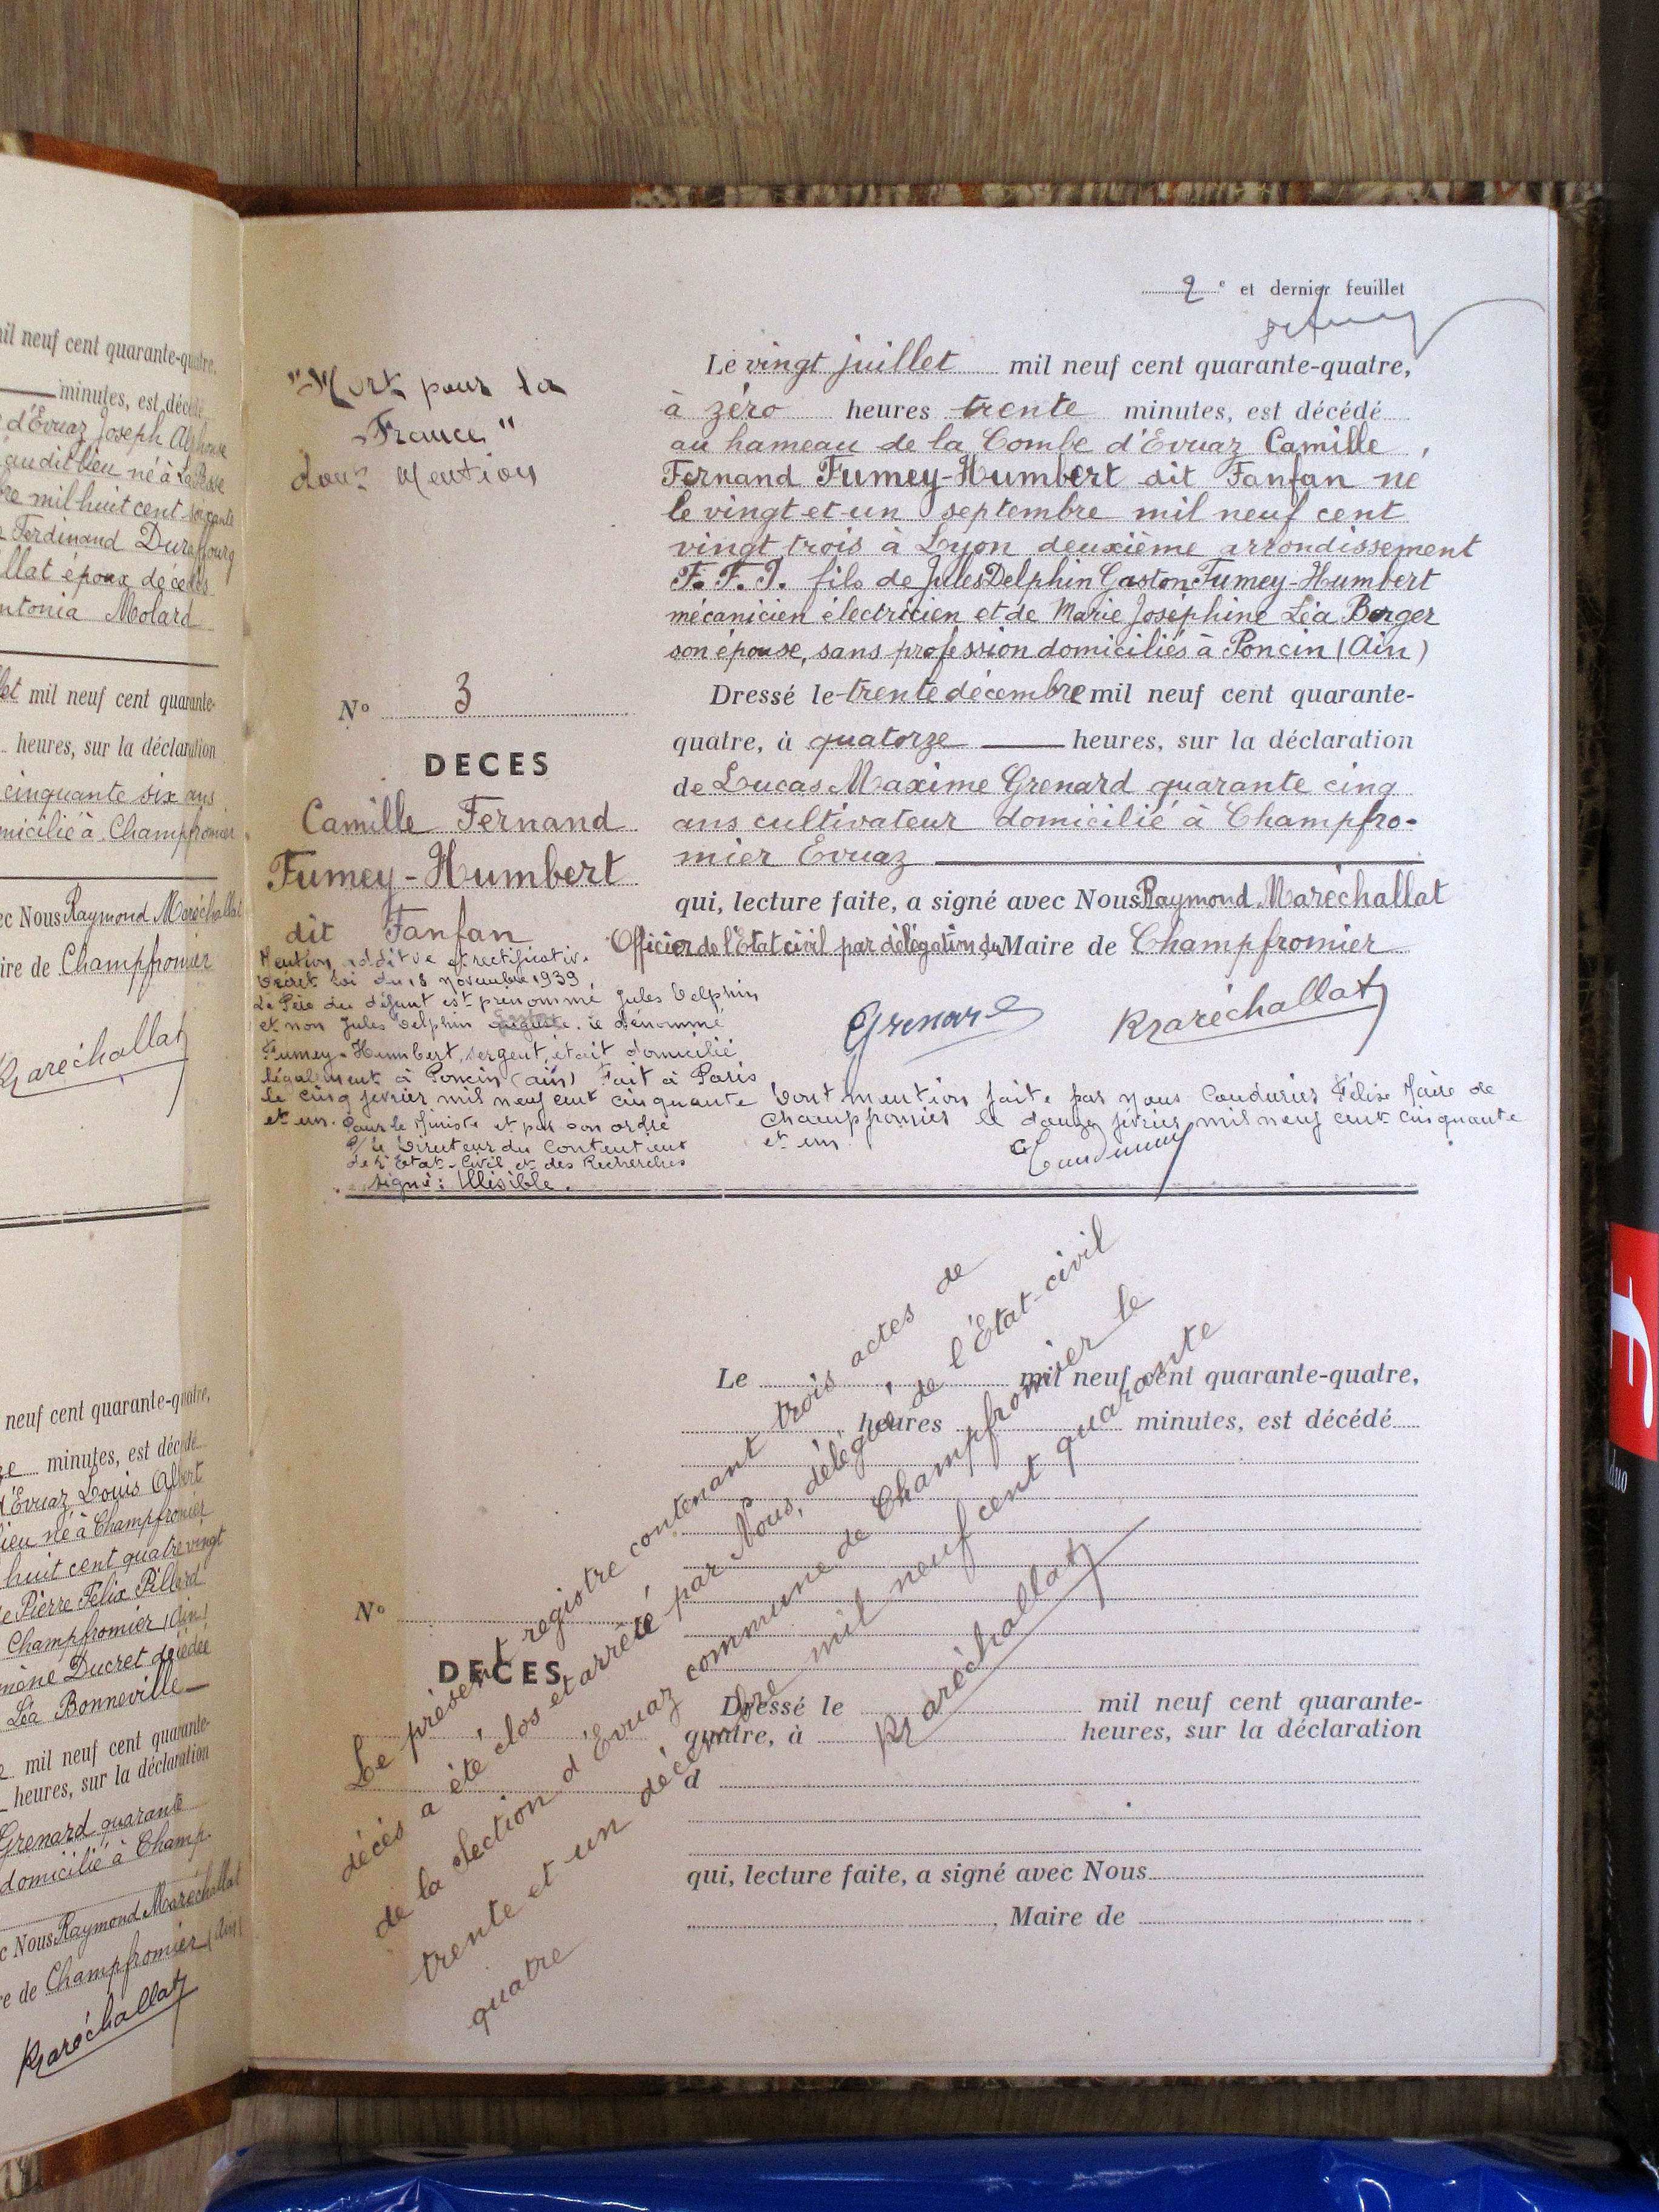 mil neuf cent quarante-quatre,
minutes, est décédé
d'Evuaz Joseph Alphonse
au dit lieu né à La
mil huit cent soixante
Ferdinand Duraffourg
époux décédés
Molard
mil neuf cent quarante-
heures, sur la déclaration
cinquante six ans
domicilié à Champfromier
Nous Raymond Maréchallat
de Champfromier
Maréchallat
neuf cent quarante-quatre,
minutes, est décédé
d'Evuaz Louis Albert
lieu né à Champfromier
huit cent quatre vingt
Pierre Félix Pillard
Champfromier (Ain)
Ducret décédée
Léa Bonneville
mil neuf cent quarante-
heures, sur la déclaration
Grenard quarante
domicilié à Champ-
Nous Raymond Maréchallat
de Champfromier (Ain)
Maréchallat
2e et dernier feuillet
"Mort pour la
France"
dont Mention
Le vingt juillet mil neuf cent quarante-quatre,
à zéro heures trente minutes, est décédé
au hameau de la Combe d'Evuaz Camille,
Fernand Fumey-Humbert dit Fanfan né
le vingt et un septembre mil neuf cent
vingt trois à Lyon deuxième arrondissement
F.F.I. fils de Jules Delphin Gaston Fumey-Humbert
mécanicien électricien et de Marie Joséphine Léa Berger
son épouse, sans profession domiciliés à Poncin (Ain)
Dressé le trente décembre mil neuf cent quarante-
quatre, à quatorze heures, sur la déclaration
de Lucas Maxime Grenard quarante cinq
ans cultivateur domicilié à Champfro-
mier Evuaz
qui, lecture faite, a signé avec Nous Raymond Maréchallat
Officier de l'Etat civil par délégation du Maire de Champfromier
Grenard
Maréchallat
No 3
DECES
Camille Fernand
Fumey-Humbert
dit Fanfan
Mention additive et rectificativ.
Décret loi du 18 novembre 1939
Le Père du défunt est prénommé Jules Delphin
et non Jules Delphin le dénommé
Fumey-Humbert, sergent, était domicilié
légalement à Poncin (ain) Fait à Paris
le cinq février mil neuf cent cinquante
et un. Pour le Ministre et par son ordre
P/ le Directeur du Contentieux
de l'Etat-Civil et des Recherches
signé: Illisible.
Dont mention faite par nous Couduriez Félix Maire de
Champfromier le douze février mil neuf cent cinquante
et un
Le mil neuf cent quarante-quatre,
heures minutes, est décédé
No
DECES
Dressé le mil neuf cent quarante-
quatre, à heures, sur la déclaration
d
qui, lecture faite, a signé avec Nous
, Maire de
Le présent registre contenant trois actes de
décès a été clos et arrêté par Nous, délégué de l'Etat-civil
de la section d'Evuaz commune de Champfromier le
trente et un décembre mil neuf cent quarante
quatre
Maréchallat
duo